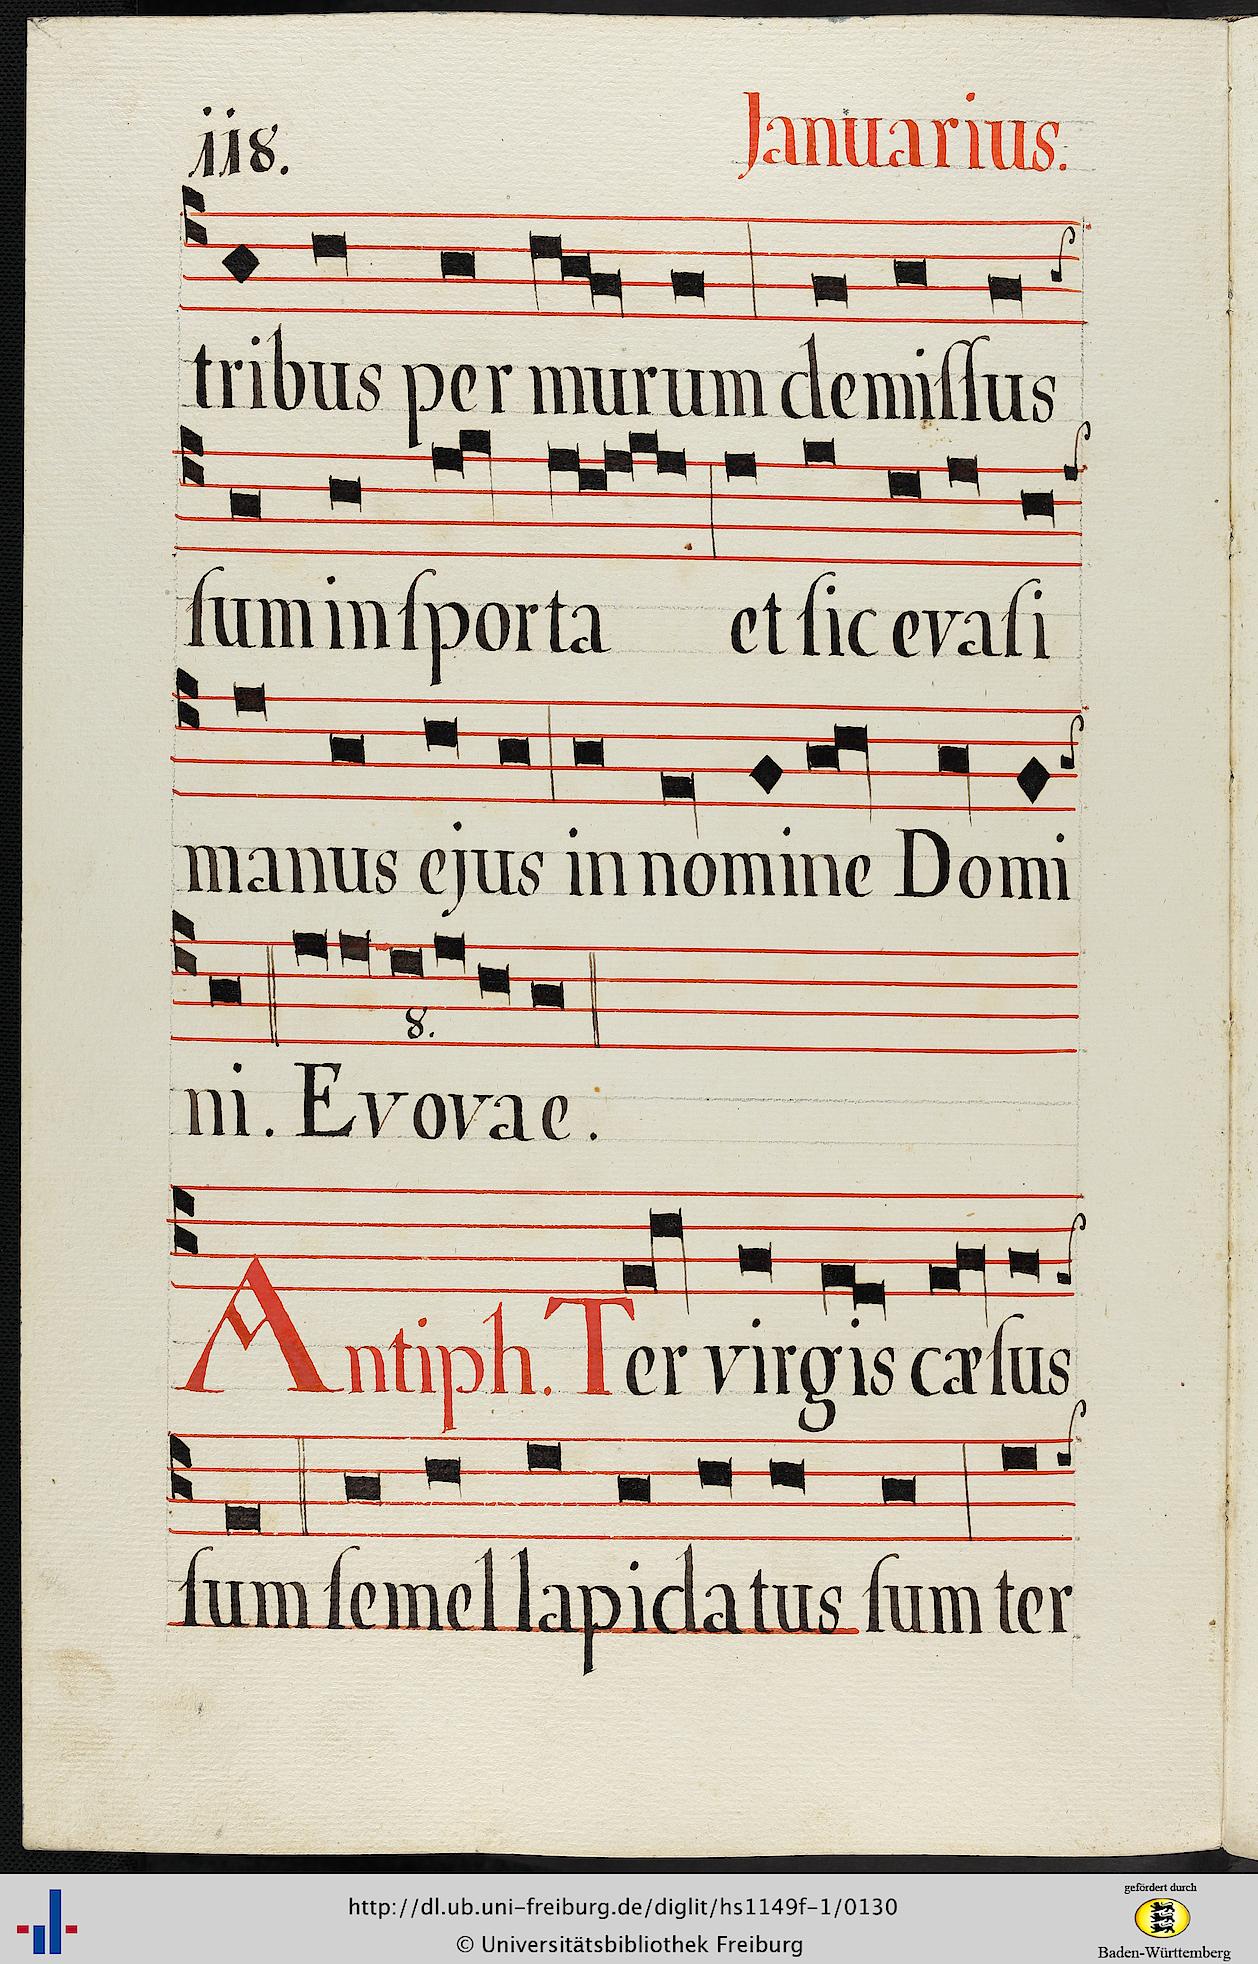 118.
Januarius.
tribus per murum demiſſus
ſum in ſporta et ſic evaſi
manus ejus in nomine Domi
8.
ni. Evovae.
Antiph. Ter virgis cæſus
ſum ſemel lapidatus ſum ter
gefördert durch
http://dl.ub.uni-freiburg.de/diglit/hs1149f-1/0130
© Universitätsbibliothek Freiburg
Baden-Württemberg